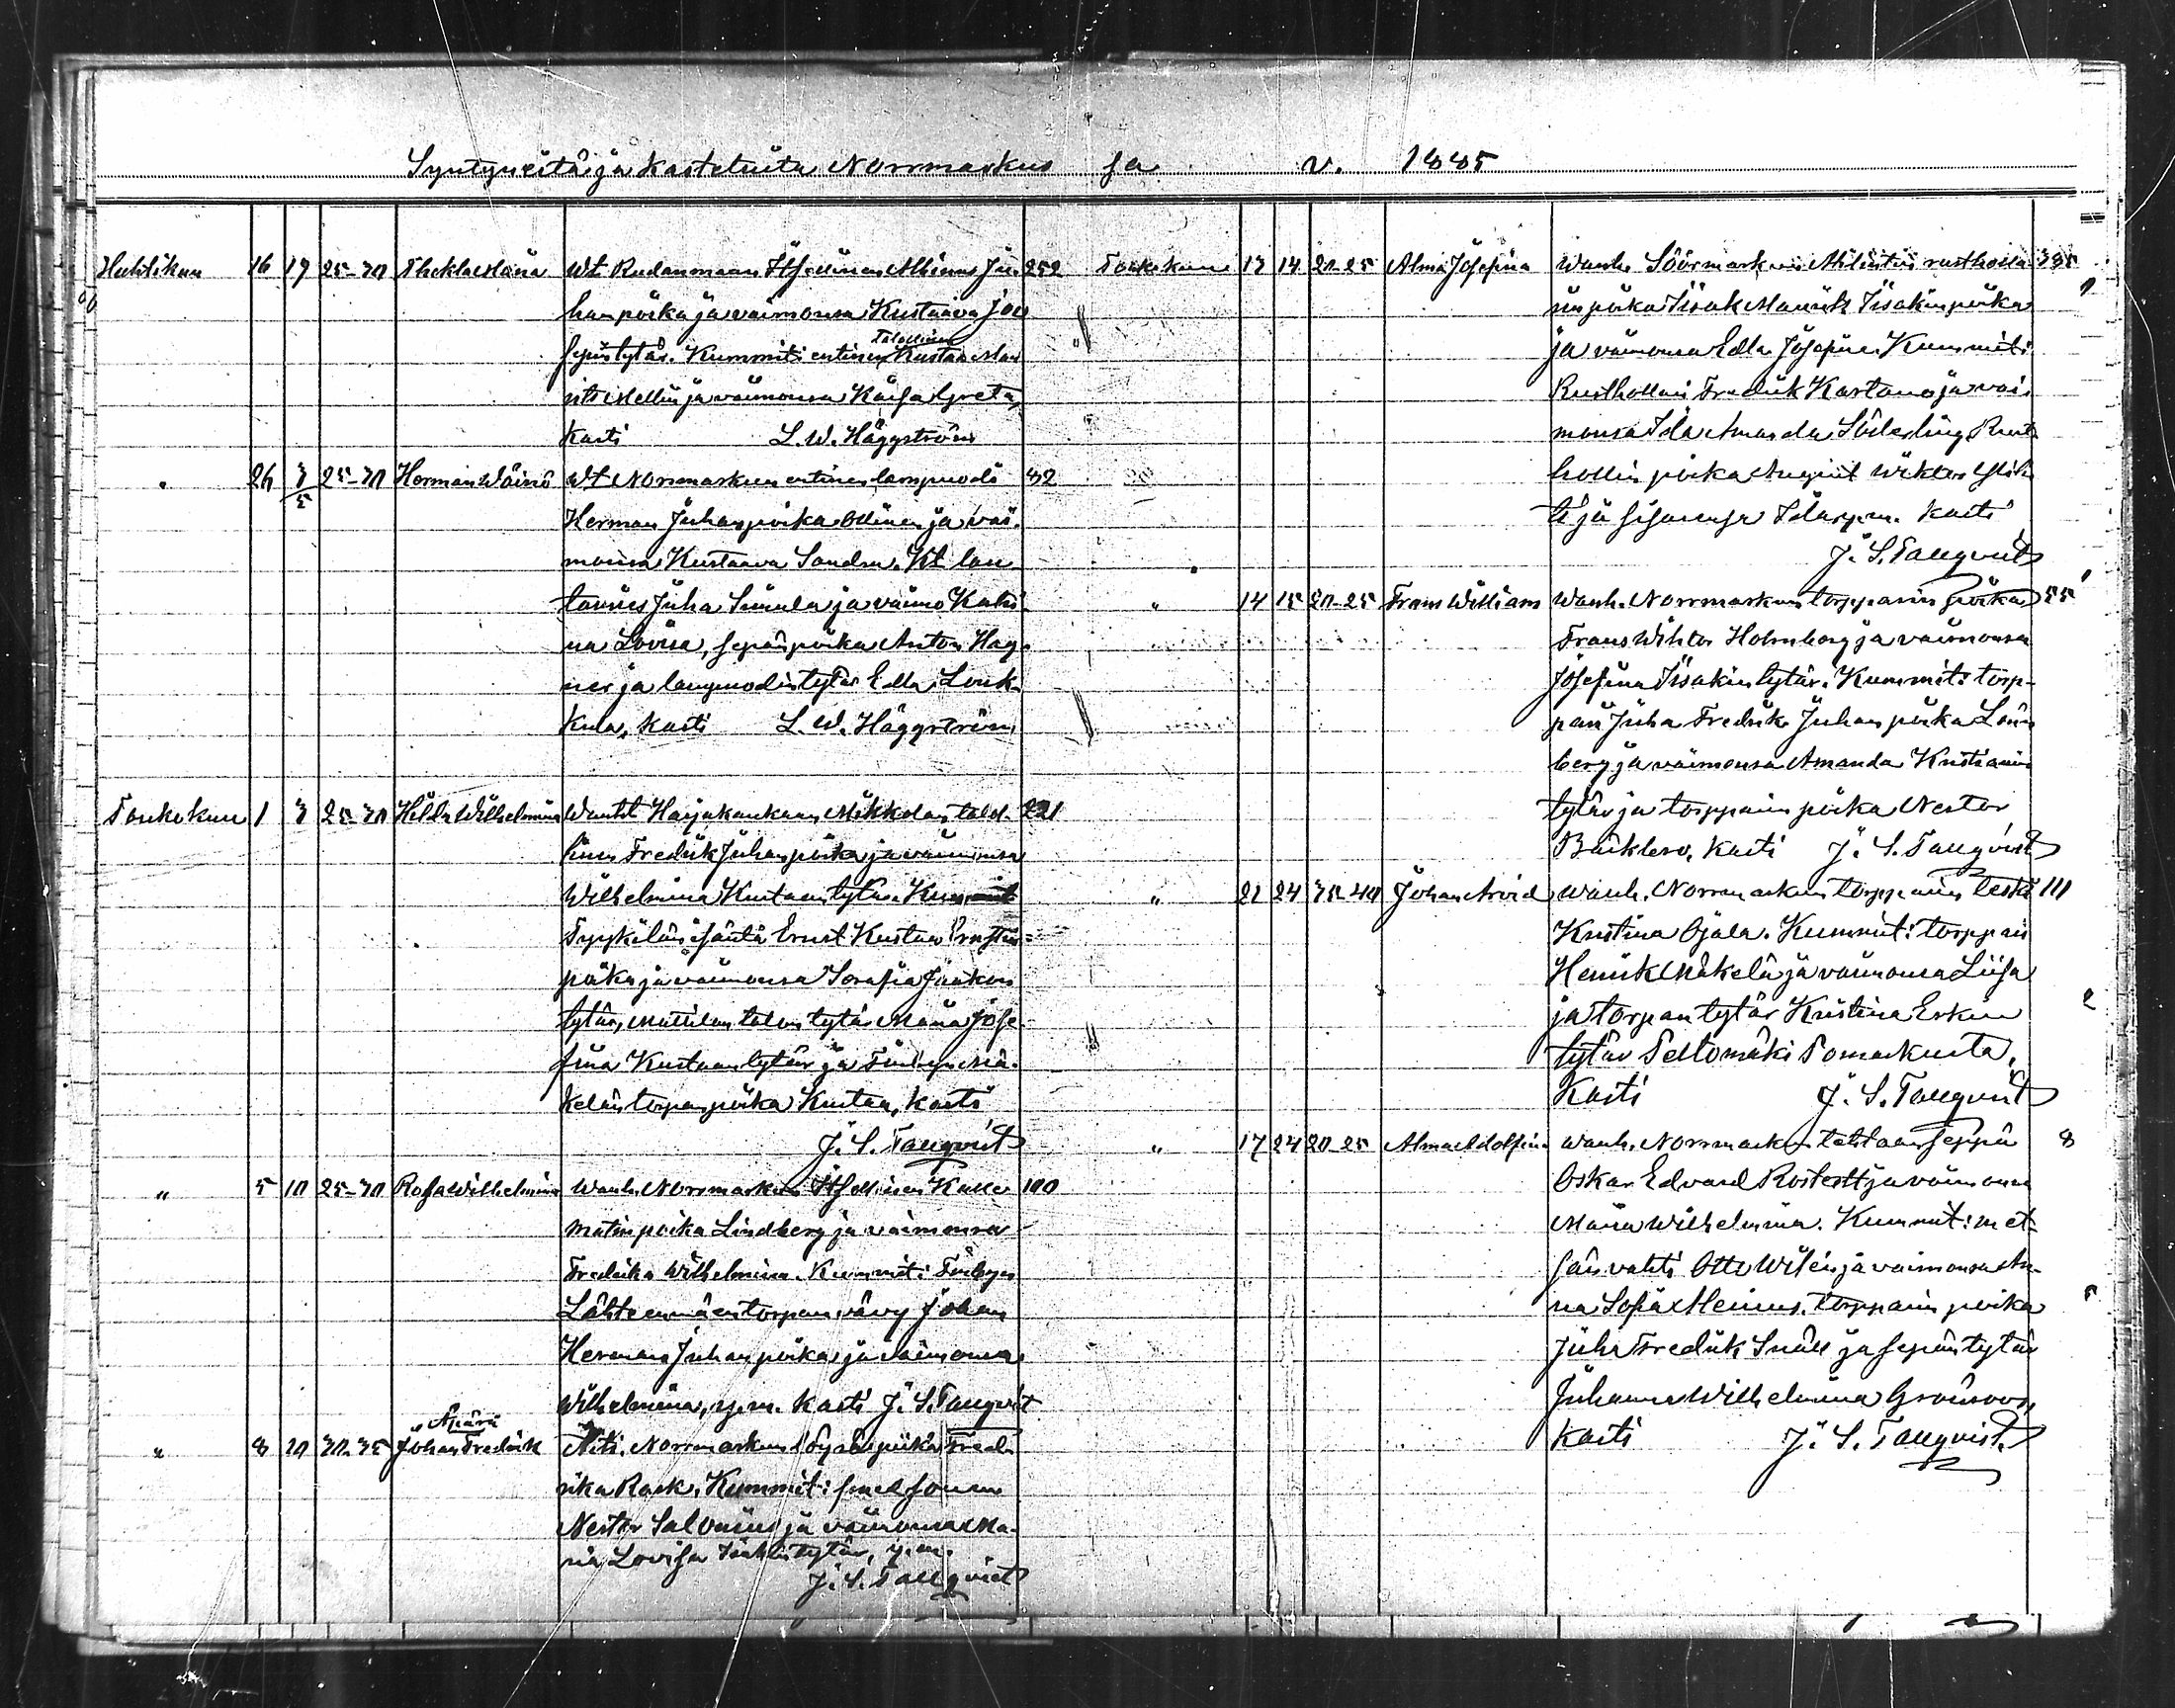 Syntyneitä ja Kastetuita Norrmarkus sa v. 1885
Huhtikuu 16 19 25-30 Thekla Maria Wt Rudanmaan Itsellinen Albinus Ju- 252
hanpoika ja vaimonsa Kustaava Joo
Talollinen
sepintytär. Kummit: entinen Kustaa Mau
rits Mellin ja vaimonsa Kaisa Greta,
Kasti L. W. Häggström
" 26 3/5 25-30 Herman Wäinö Wt Norrmarkun entinen lampuodi 32
Herman Juhanpoika Ollinen ja vai-
monsa Kustaava Sandra. Kt lau
tamies Juha Simula ja vaimo Katri-
na Lovisa, sepän poika Anton Hag-
ner ja lampuodin tytär Edla Louk-
kula, Kasti L. W. Häggström
Toukokuu 1 3 25-30 Hilda Wilhelmina Wanht Harjakankaan Mikkolan talol- 221
linen Fredrik Juhanpoika ja vaimonsa
Wilhelmina Kustaantytär. Kummit
Tyykilän isäntä Ernst Kustaa Ernstin-
poika ja vaimonsa Serafia Jaakon
tytär, Mattilan talon tytär Maria Jose-
fina Kustaantytär ja Finbyn Mä-
kelän torpan poika Kustaa, Kasti
J. S. Tallqvist
" 5 10 25-30 Rosa Wilhelmina Wanh. Norrmarkun Itsellinen Kalle 100
Matinpoika Lindberg ja vaimonsa
Fredrika Wilhelmina. Kummit: Finbyn
Lähteenmäen torpan vävy Johan
Herman Juhanpoika ja vaimonsa
Wilhelmina, y.m. Kasti J. S. Tallqvist
Äpärä
" 8 10 30-35 Johan Fredrik Äiti. Norrmarkun piika Fred-
rika Rask. Kummit:
Nestor Salonius ja vaimonsa Ma-
ria Lovisa tytär, y.m.
J. S. Tallqvist
Toukokuu 13 14 20-25 Alma Josefina Wanh. Söörmarkun rustholla-
rin poika Iisak Maurits Iisakinpoika
ja vaimonsa Edla Josefina. Kummit:
Rusthollari Fredrik Kartano ja vai-
monsa Ida Amanda Söderling Rust
hollin poika August Wiktor
ja sisarensa Ida y.m. Kasti
J. S. Tallqvist
" 14 15 20-25 Frans William Wanh. Norrmarkun torpparin poika 55
Frans Wihtor Holmberg ja vaimonsa
Josefina Iisakintytär. Kummit: torp-
pari Juha Fredrik Juhanpoika Lönn
berg ja vaimonsa Amanda Kristianin
tytär ja torpparin poika Nestor
Kasti J. S. Tallqvist
" 21 24 35-40 Johan Arvid Wanh. Norrmarkun torpparin leski 111
Kristina Ojala. Kummit: torppari
Henrik Mäkelä ja vaimonsa Liisa
ja torpan tytär Kristina Erkin
tytär Peltomäki Pomarkusta,
Kasti J. S. Tallqvist
" 17 24 20-25 Alma Adolfina Wanh. Norrmarkun tehtaan seppä 8
Oskar Edvard Rostedt ja vaimonsa
Maria Wilhelmina. Kummit: met-
sän vahti Otto Wilén ja vaimonsa An-
na Sofia Helenius. torpparin poika
Juha Fredrik Snäll ja sepän tytär
Juhanna Wilhelmina Grönroos,
Kasti J. S. Tallqvist